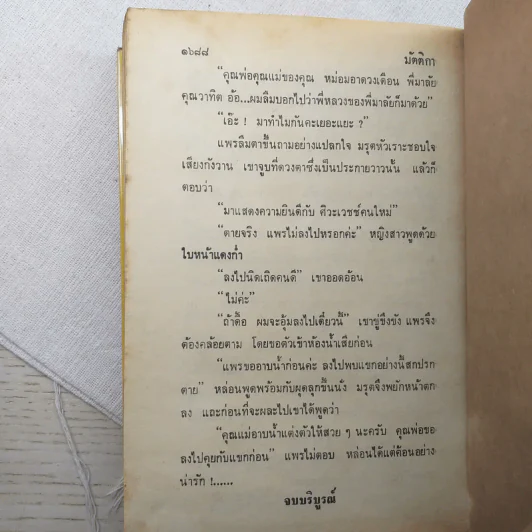 ๑๖๘๘ มัตติกา
“คุณพ่อคุณแม่ของคุณ หม่อมอาดวงเดือน พี่มาลัย
คุณวาทิต อ้อ...ผมลืมบอกไปว่าพี่หลวงของพี่มาลัยก็มาด้วย”
“เอ๊ะ ! มาทำไมกันคะเยอะแยะ ?”
แพรลืมตาขึ้นถามอย่างแปลกใจ มรุตหัวเราะชอบใจ
เสียงกังวาน เขาจูบที่ดวงตาซึ่งเป็นประกายวาวนั้น แล้วก็
ตอบว่า
“มาแสดงความยินดีกับ ศิวะเวชช์คนใหม่”
“ตายจริง แพรไม่ลงไปหรอกค่ะ” หญิงสาวพูดด้วย
ใบหน้าแดงก่ำ
“ลงไปนิดเถิดคนดี” เขาออดอ้อน
“ไม่ค่ะ”
“ถ้าดื้อ ผมจะอุ้มลงไปเดี๋ยวนี้” เขาขู่ขึงขัง แพรจึง
ต้องคล้อยตาม โดยขอตัวเข้าห้องน้ำเสียก่อน
“แพรขออาบน้ำก่อนค่ะ ลงไปพบแขกอย่างนี้สกปรก
ตาย” หล่อนพูดพร้อมกับผุดลุกขึ้นนั่ง มรุตจึงพยักหน้าตก
ลง และก่อนที่จะผละไปเขาได้พูดว่า
“คุณแม่อาบน้ำแต่งตัวให้สวย ๆ นะครับ คุณพ่อขอ
ลงไปคุยกับแขกก่อน” แพรไม่ตอบ หล่อนได้แต่ค้อนอย่าง
น่ารัก !......
จบบริบูรณ์